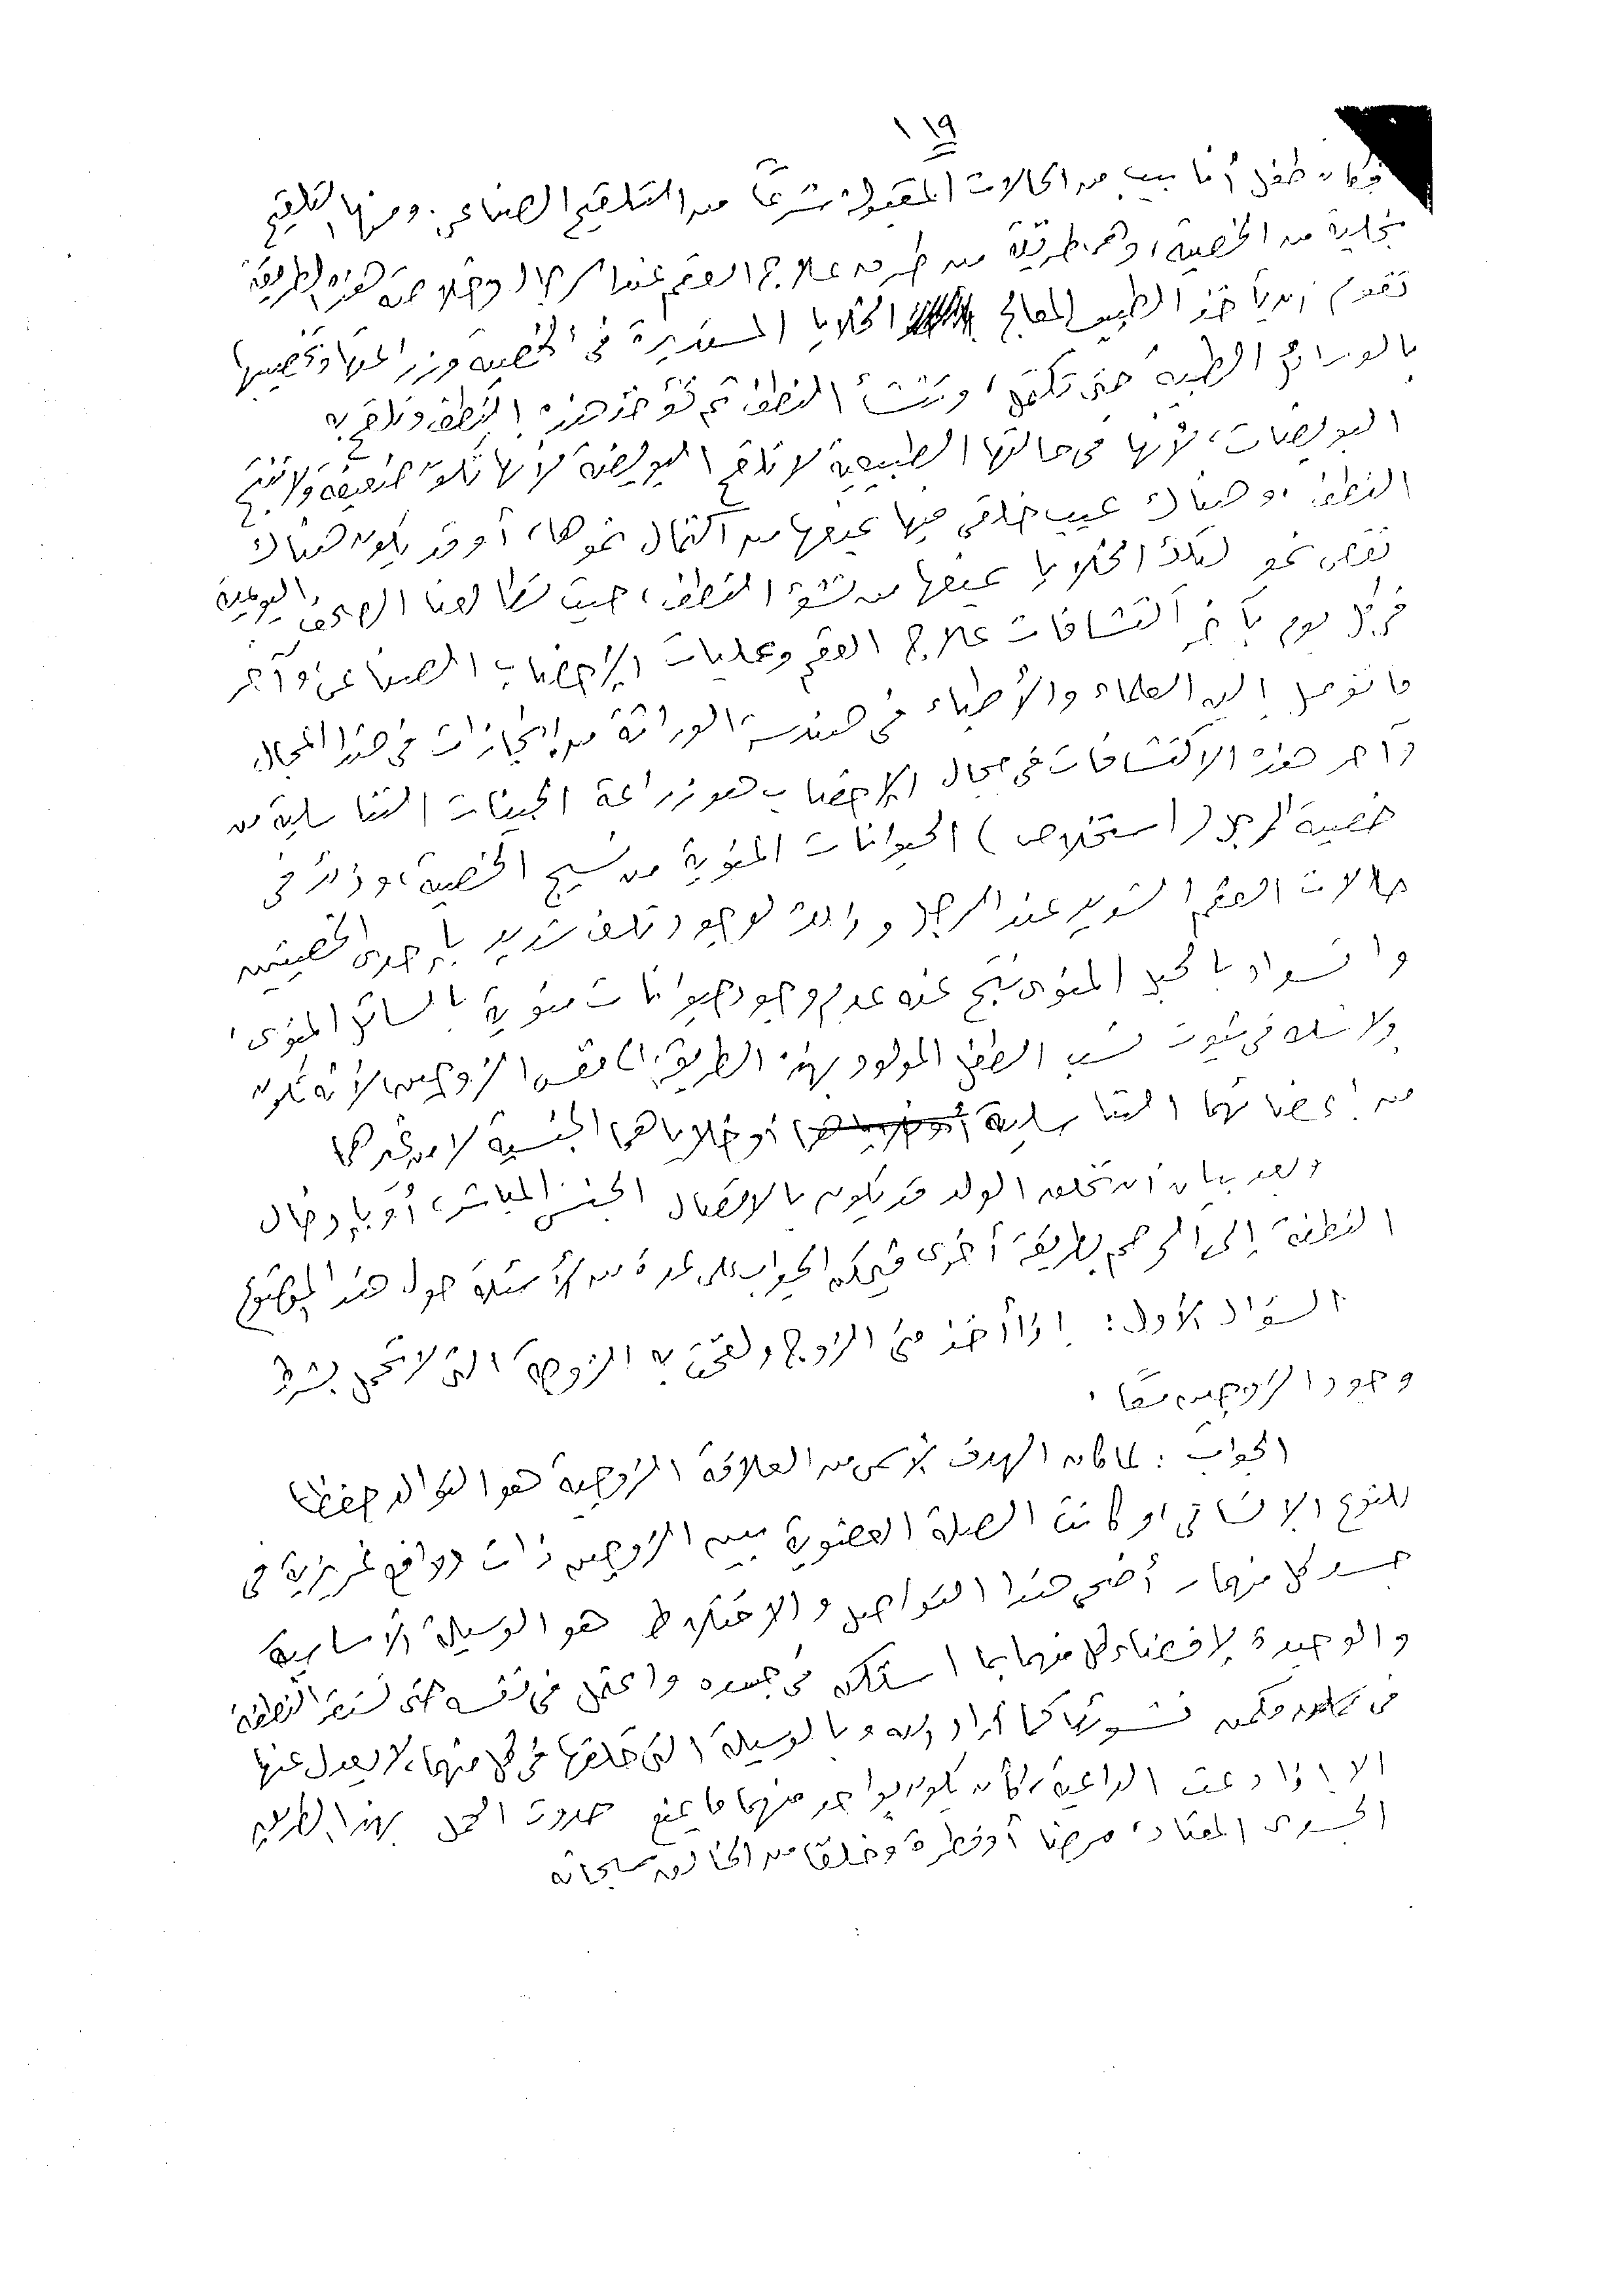 ١١٩
فكان طفل أنابيب من الحالات المقبولة شرعًا من التلقيح الصناعي. ومنها التلقيح
بخلية من الخصية، وهى طريقة من طرق علاج العقم عند الرجال وخلاصة هذه الطريقة
تقوم أن يأخذ الطبيب المعالج الخلايا المستديرة فى الخصية وزراعتها وتخصيبها
بالوسائل الطبية حتى تكتمل، وتنشأ النطف ثم تؤخذ هذه النطف وتلقح به
البويضات، لأنها فى حالتها الطبيعية لا تلقح البويضة لأنها تكون ضعيفة ولا تنتج
النطف، وهناك عيب خلقى فيها يمنعها من اكتمال نموها، أو قد يكون هناك
نقص نمو لتلك الخلايا يمنعها من نشوء النطف، حيث تطالعنا الصحف اليومية
فى كل يوم بآخر اكتشافات علاج العقم وعمليات الإخصاب الصناعى وآخر
ما توصل إليه العلماء والأطباء فى هندسة الوراثة من إنجازات فى هذا المجال
وآخر هذه الاكتشافات فى مجال الإخصاب هو زراعة الجينات التناسلية من
خصية الرجل (استخلاص) الحيوانات المنوية من نسيج الخصية، وذلك فى
حالات العقم الشديد عند الرجل وذلك لوجود تلف شديد بإحدى الخصيتين
وانسداد بالحبل المنوى نتج عنه عدم وجود حيوانات منوية بالسائل المنوى،
ولا شك فى ثبوت نسب الطفل المولود بهذه الطريقة إلى نفس الزوجين لأنه تكون
من أعضائهما التناسلية أو خلاياهما الجنسية لا من غيرهما
وبعد بيان أن تخلق الولد قد يكون بالاتصال الجنسى المباشر، أو بإدخال
النطفة إلى الرحم بطريقة أخرى فيمكن الجواب على عدة من الأسئلة حول هذا الموضوع
السؤال الأول: إذا أخذ منى الزوج ولقحت به الزوجة التى لا تحمل بشرط
وجود الزوجين معًا.
الجواب: لما كان الهدف الأسمى من العلاقة الزوجية هو التوالد حفظا
للنوع الإنسانى، وكانت الصلة العضوية بين الزوجين ذات دوافع غريزية فى
جسد كل منهما، أضحى هذا التواصل والاختلاط هو الوسيلة الأساسية
والوحيدة لإفضاء كل منهما بما استكن فى جسده واعتمل فى نفسه حتى تستقر النطفة
فى مكمن نشوئها كما أراد الله وبالوسيلة التى خلقها فى كل منهما، لا يعدل عنها
إلا إذا دعت الداعية، كأن يكون بواحد منهما ما يمنع حدوث الحمل بهذا الطريق
الجسدى المعتاد، مرضا أو فطرة وخلقا من الخالق سبحانه